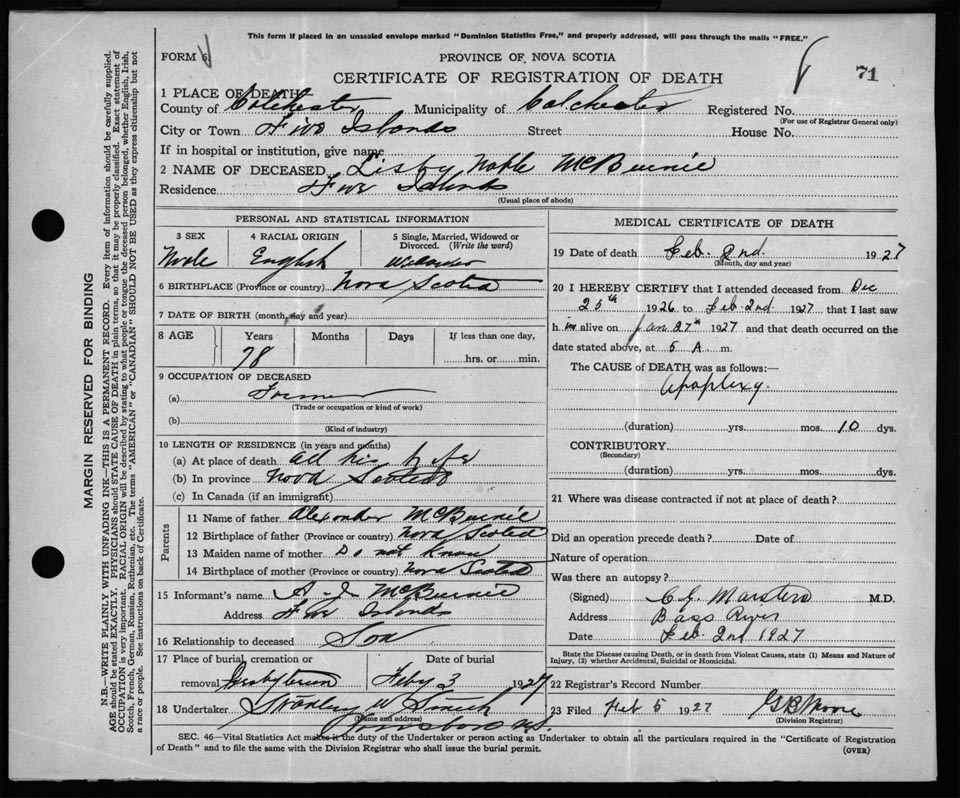 This form if placed in an unsealed envelope marked "Dominion Statistics Free," and properly addressed, will pass through the mails "FREE."
FORM 6
PROVINCE OF NOVA SCOTIA
71
CERTIFICATE OF REGISTRATION OF DEATH
1 PLACE OF DEATH
County of Colchester Municipality of Colchester Registered No.
(For use of Registrar General only)
City or Town Five Islands Street House No.
If in hospital or institution, give name
2 NAME OF DECEASED Lisby Noble McBurnie
Residence Five Islands
(Usual place of abode)
PERSONAL AND STATISTICAL INFORMATION
3 SEX 4 RACIAL ORIGIN 5 Single, Married, Widowed or Divorced. (Write the word)
Male English Widower
6 BIRTHPLACE (Province or country) Nova Scotia
7 DATE OF BIRTH (month, day and year)
8 AGE Years Months Days If less than one day,
78 hrs. or min.
9 OCCUPATION OF DECEASED
(a) Farmer
(Trade or occupation or kind of work)
(b)
(Kind of industry)
10 LENGTH OF RESIDENCE (in years and months)
(a) At place of death all his life
(b) In province Nova Scotia
(c) In Canada (if an immigrant)
Parents
11 Name of father Alexander McBurnie
12 Birthplace of father (Province or country) Nova Scotia
13 Maiden name of mother Do not Know
14 Birthplace of mother (Province or country) Nova Scotia
15 Informant's name A. J. McBurnie
Address Five Islands
16 Relationship to deceased Son
17 Place of burial, cremation or removal Date of burial
Presbyterian Feby 3 1927
18 Undertaker Stanley W Smith
(Name and address)
MEDICAL CERTIFICATE OF DEATH
19 Date of death Feb. 2nd. 1927
(Month, day and year)
20 I HEREBY CERTIFY that I attended deceased from Dec
25th 1926 to Feb 2nd 1927 that I last saw
him alive on Jan 27th 1927 and that death occurred on the
date stated above, at 5 A. m.
The CAUSE of DEATH was as follows:—
Apoplexy.
(duration) yrs. mos. 10 dys.
CONTRIBUTORY
(Secondary)
(duration) yrs. mos. dys.
21 Where was disease contracted if not at place of death?
Did an operation precede death? Date of
Nature of operation
Was there an autopsy?
(Signed) C J. Marsters M.D.
Address Bass River
Date Feb. 2nd 1927
State the Disease causing Death, or in death from Violent Causes, state (1) Means and Nature of
Injury, (2) whether Accidental, Suicidal or Homicidal.
22 Registrar's Record Number
23 Filed Feb 5 1927 G B Moore
(Division Registrar)
SEC. 46—Vital Statistics Act makes it the duty of the Undertaker or person acting as Undertaker to obtain all the particulars required in the "Certificate of Registration
of Death" and to file the same with the Division Registrar who shall issue the burial permit.
(OVER)
MARGIN RESERVED FOR BINDING
N.B.—WRITE PLAINLY WITH UNFADING INK—THIS IS A PERMANENT RECORD. Every item of information should be carefully supplied.
AGE should be stated EXACTLY. PHYSICIANS should STATE CAUSE OF DEATH in plain terms, so that it may be properly classified. Exact statement of
OCCUPATION is very important. RACIAL ORIGIN will be described by stating to what people or tongue the deceased person belonged, whether English, Irish,
Scotch, French, German, Russian, Ruthenian, etc. The terms "AMERICAN" or "CANADIAN" SHOULD NOT BE USED as they express citizenship but not
a race or people. See instructions on back of Certificate.